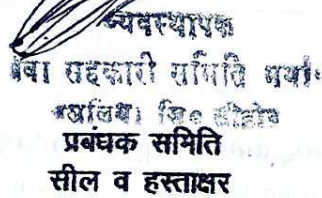 व्यवस्थापक
सेवा सहकारी समिति मर्या०
जि० सीहोर
प्रबंधक समिति
सील व हस्ताक्षर